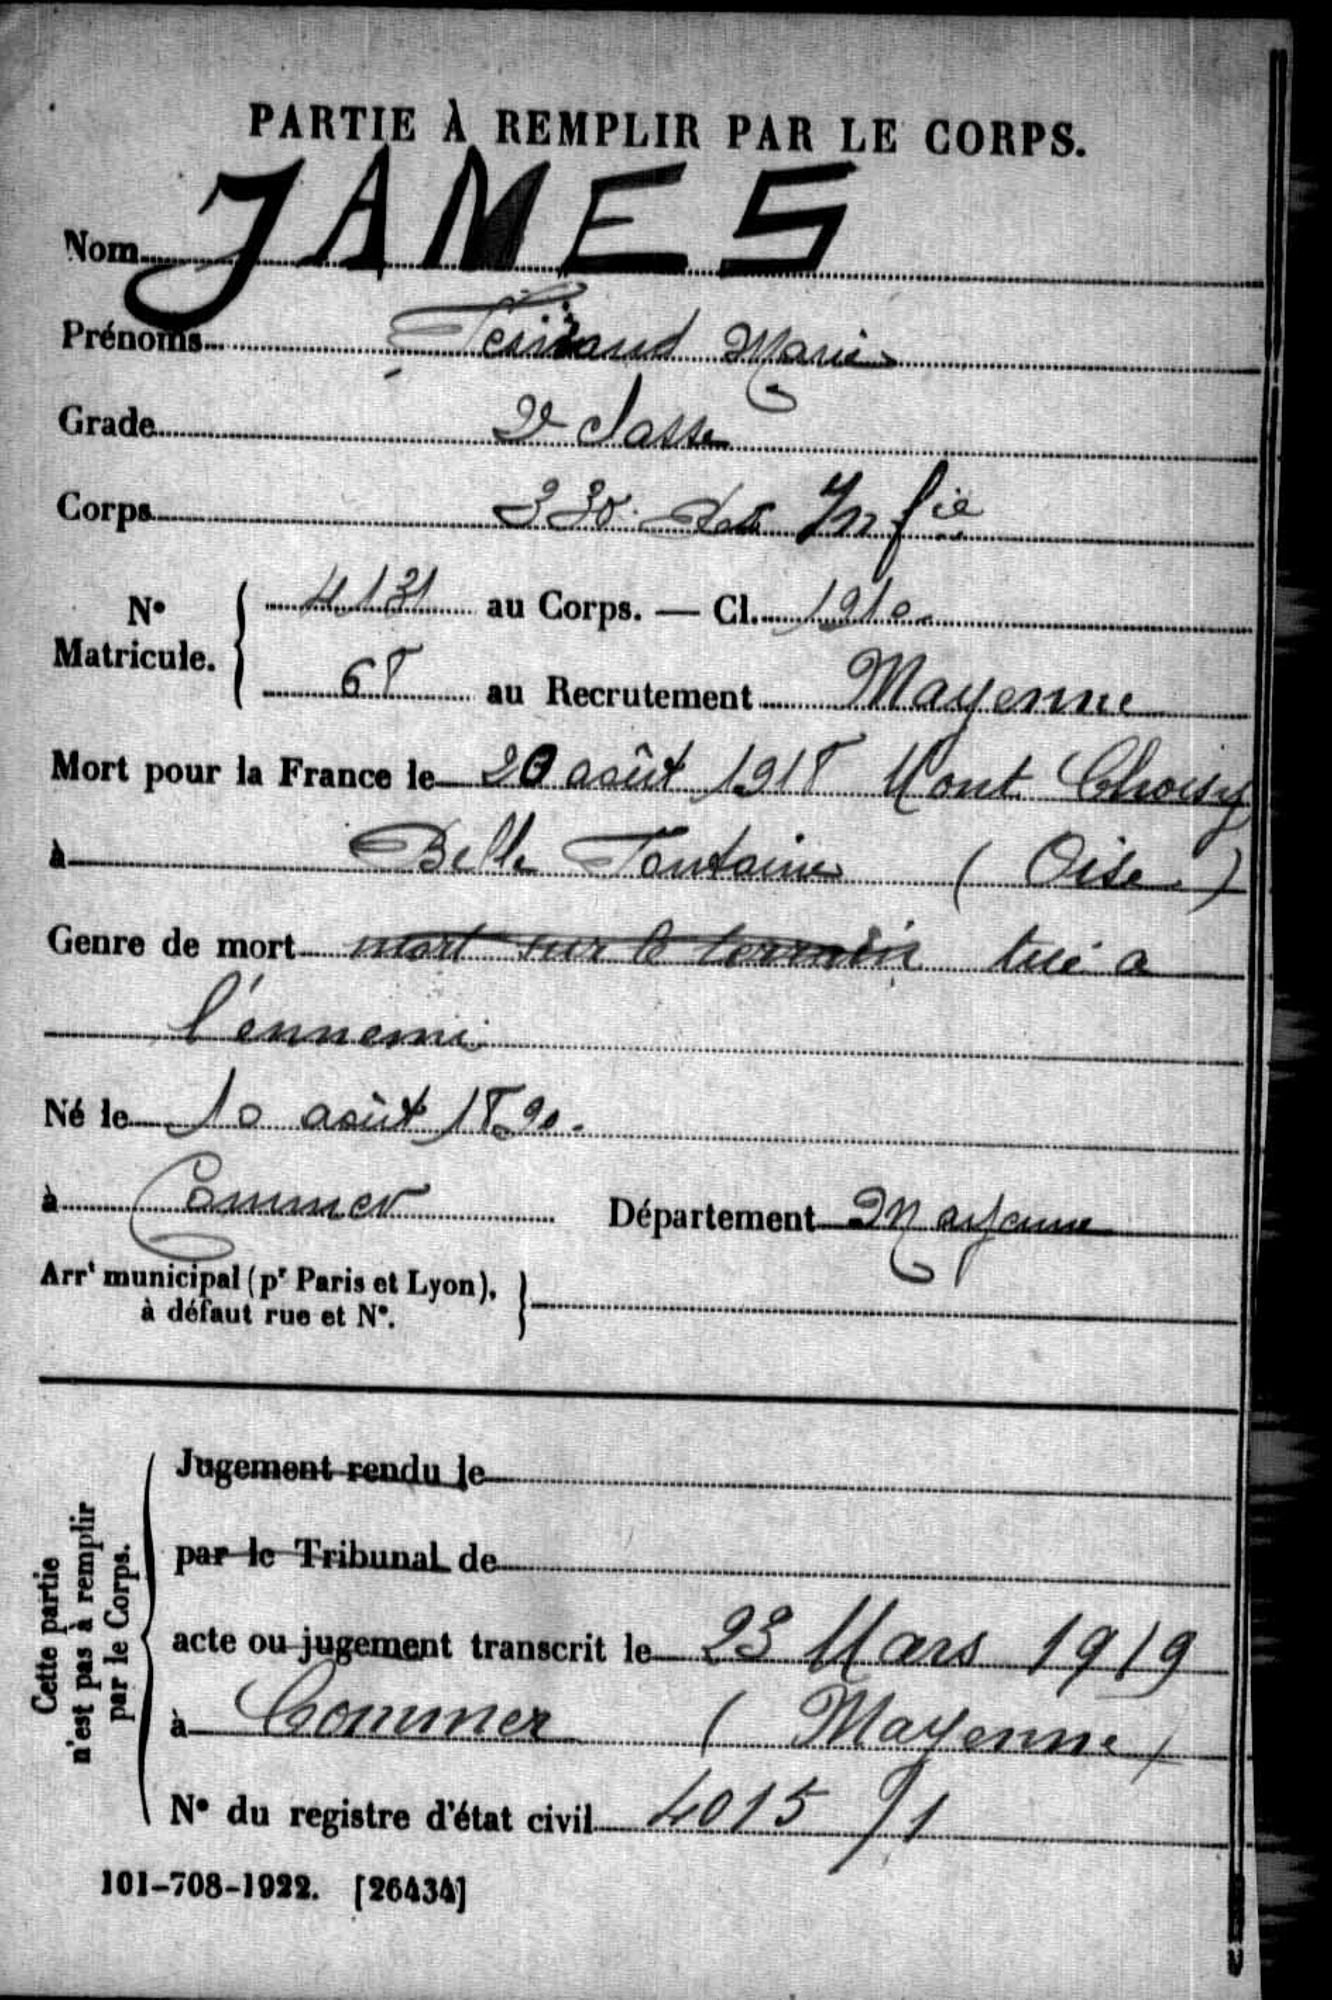 PARTIE À REMPLIR PAR LE CORPS.
Nom JAMES
Prénoms Fernand Marie
Grade 2e classe
Corps 330. Infie
No Matricule. 4131 au Corps. — Cl. 1910.
68 au Recrutement Mayenne
Mort pour la France le 20 août 1918 Mont Choisy
à Belle Fontaine (Oise)
Genre de mort mort sur le terrain tué a
l'énnemi
Né le 10 août 1890.
à Commer Département Mayenne
Arrt municipal (pr Paris et Lyon),
à défaut rue et No.
Cette partie
n'est pas à remplir
par le Corps.
Jugement rendu le
par le Tribunal de
acte ou jugement transcrit le 23 Mars 1919
à Commer (Mayenne)
No du registre d'état civil 4015/1
101-708-1922. [26434]